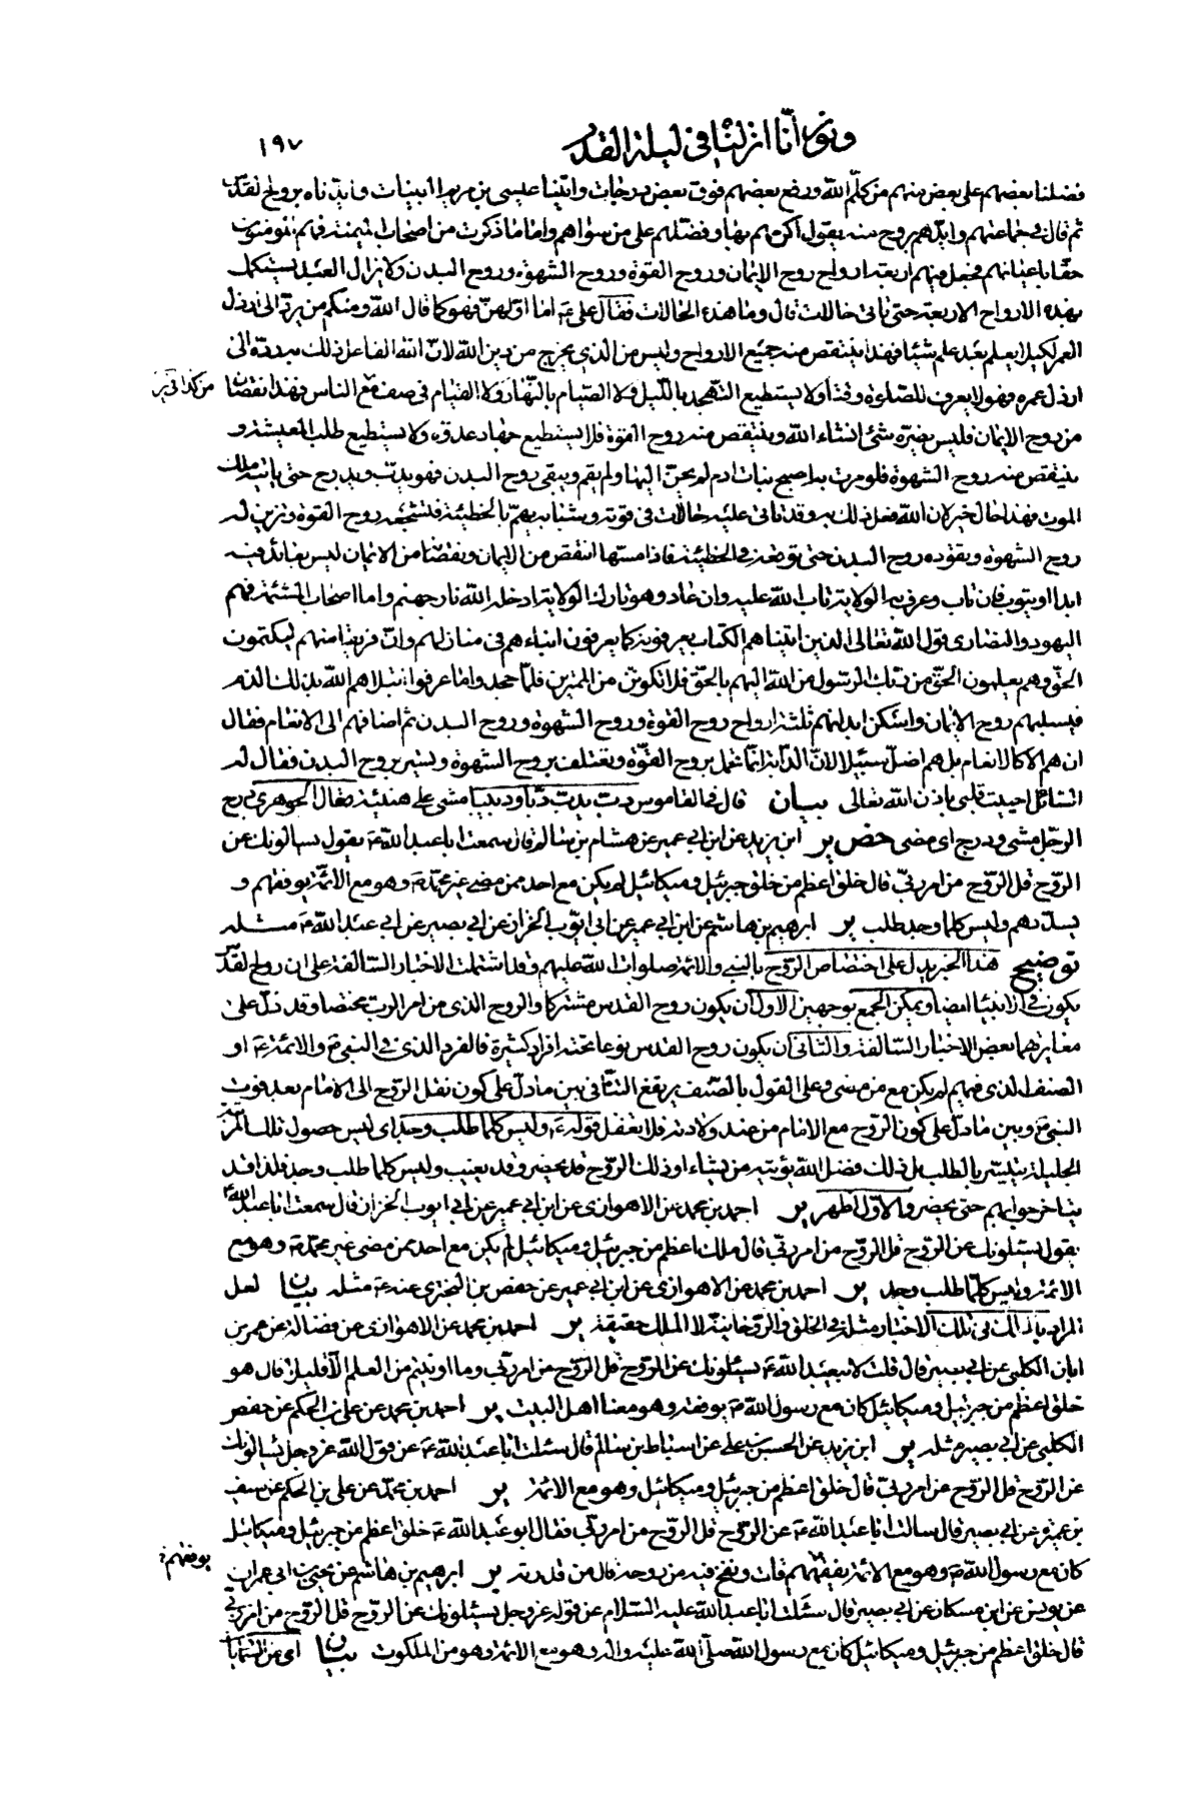 ونور انّا انزلناه فى ليلة القدر ١٩٧
فضلنا بعضهم على بعض منهم من كلّم اللّه ورفع بعضهم فوق بعض درجات واتينا عيسى بن مريم البينات وايدناه بروح القدس
ثم قال فى جماعتهم وايّدهم بروح منه يقول اكرمهم بها وفضلهم على من سواهم واما ما ذكرت من اصحاب الميمنة فهم المؤمنون
حقا باعيانهم فجعل فيهم اربعة ارواح روح الايمان وروح القوة وروح الشهوة وروح البدن ولا يزال العبد يستكمل
بهذه الارواح الاربعة حتى ياتى حالات قال وما هذه الحالات فقال على ع اما اولهنّ فهو كما قال اللّه ومنكم من يردّ الى ارذل
العمر لكيلا يعلم بعد علم شيئا فهذا ينتقص منه جميع الارواح وليس من الذى يخرج من دين اللّه لانّ اللّه الفاعل ذلك به ردّه الى
ارذل عمره فهو لا يعرف للصلوة وقتا ولا يستطيع التهجد بالليل ولا الصيام بالنّهار ولا القيام فى صف مع الناس فهذا نقصان
من روح الايمان فليس يضرّه شئ انشاء اللّه وينتقص منه روح القوة فلا يستطيع جهاد عدوّه ولا يستطيع طلب المعيشة و
ينتقص منه روح الشهوة فلو مرت به اصبح بنات ادم لم يحنّ اليها ولم يقم ويبقى روح البدن فهو يدبّ ويدرج حتى ياتيه ملك
الموت فهذا حال خير لان اللّه فعل ذلك به وقد تاتى عليه حالات فى قوته وشبابه يهمّ بالخطيئة فتشجعه روح القوة وتزين له
روح الشهوة ويقوده روح البدن حتى توقعه فى الخطيئة فاذا مسّها انتقص من الايمان ونقصانه من الايمان ليس بعائد فيه
ابدا او يتوب فان تاب وعرف الولاية تاب اللّه عليه وان عاد وهو تارك الولاية ادخله اللّه نار جهنم واما اصحاب المشئمة فهم
اليهود والنصارى قول اللّه تعالى الذين اتيناهم الكتاب يعرفونه كما يعرفون ابناءهم فى منازلهم وانّ فريقا منهم ليكتمون
الحقّ وهم يعلمون الحقّ من ربّك الرسول من اللّه اليهم بالحق فلا تكوننّ من الممترين فلمّا جحدوا ما عرفوا ابتلاهم اللّه بذلك الذم
فسلبهم روح الايمان واسكن ابدانهم ثلثة ارواح روح القوة وروح الشهوة وروح البدن ثم اضافهم الى الانعام فقال
ان هم الا كالانعام بل هم اضلّ سبيلا لانّ الدابة انّما تحمل بروح القوّة وتعتلف بروح الشهوة وتسير بروح البدن فقال له
السائل احييت قلبى باذن اللّه تعالى بيان قال فى القاموس دبّ يدبّ دبّا ودبيبا مشى على هنيئة وقال الجوهرى درج
الرجل مشى ودرج اى مضى خص ير ابن يزيد عن ابن ابى عمير عن هشام بن سالم قال سمعت ابا عبد اللّه ع يقول يسالونك عن
الرّوح قل الرّوح من امر ربّى قال خلق اعظم من خلق جبرئيل وميكائيل لم يكن مع احد ممن مضى غير محمّد ص وهو مع الائمّة يوفقهم و
يسدّدهم وليس كلما وجد طلب ير ابرهيم بن هاشم عن ابن ابى عمير عن ابى ايّوب الخزاز عن ابى بصير عن ابى عبد اللّه ع مثله
توضيح هذا الخبر يدل على اختصاص الرّوح بالنبى والائمة صلوات اللّه عليهم وقد اشتملت الاخبار السالفة على ان روح القدس
يكون فى الانبياء ايضا ويمكن الجمع بوجهين الاول ان يكون روح القدس مشتركا والروح الذى من امر الربّ مختصا وقد دلّ على
مغايرتهما بعض الاخبار السالفة والثانى ان يكون روح القدس نوعا تحته افراد كثيرة فالفرد الذى فى النبى ص والائمة ع او
الصنف الذى فيهم لم يكن مع من مضى وعلى القول بالصّنف يرتفع التنافى بين ما دلّ على كون نقل الرّوح الى الامام بعد فوت
النبى ص وبين ما دلّ على كون الرّوح مع الامام من عند ولادته فلا تغفل قوله ع وليس كلما طلب وجد اى ليس حصول تلك المرتبة
الجليلة يتيسّر بالطلب بل ذلك فضل اللّه يؤتيه من يشاء او ذلك الرّوح قد يحضر وقد يغيب وليس كلما طلب وجد فلذا قد
يتاخر جوابهم حتى يحضر والاوّل اظهر ير احمد بن محمد عن الاهوازى عن ابن ابى عمير عن ابى ايوب الخزاز قال سمعت ابا عبد اللّه ع
يقول يسئلونك عن الرّوح قل الرّوح من امر ربّى قال ملك اعظم من جبرئيل وميكائيل لم يكن مع احد ممن مضى غير محمّد ص وهو مع
الائمة وليس كلّما طلب وجد ير احمد بن محمد عن الاهوازى عن ابن ابى عمير عن حفص بن البخترى عنه ع مثله بيان لعل
المراد بالملك فى تلك الاخبار مثله فى الخلق والروحانية لا الملك حقيقة ير احمد بن محمد عن الاهوازى عن فضالة عن عمر بن
ابان الكلبى عن ابى بصير قال قلت لابيعبد اللّه ع يسئلونك عن الرّوح قل الرّوح من امر ربّى وما اوتيتم من العلم الّا قليلا قال هو
خلق اعظم من جبرئيل وميكائيل كان مع رسول اللّه ص يوفقه وهو معنا اهل البيت ير احمد بن محمد عن على بن الحكم عن حفص
الكلبى عن ابى بصير مثله ير ابن يزيد عن الحسن بن على عن اسباط بن سالم قال سئلت ابا عبد اللّه ع عن قول اللّه عز وجل يسالونك
عن الرّوح قل الرّوح من امر ربّى قال خلق اعظم من جبرئيل وميكائيل وهو مع الائمّة ير احمد بن محمّد عن على بن الحكم عن سيف
بن عميرة عن ابى بصير قال سالت ابا عبد اللّه ع عن الرّوح قل الرّوح من امر ربّى فقال ابو عبد اللّه ع خلق اعظم من جبرئيل وميكائيل
كان مع رسول اللّه ص وهو مع الائمّة يفقّههم قلت ونفخ فيه من روحه قال من قدرته ير ابرهيم بن هاشم عن يحيى بن ابى عمران
عن يونس عن ابن مسكان عن ابى بصير قال سئلت ابا عبد اللّه عليه السّلام عن قوله عز وجل يسئلونك عن الرّوح قل الرّوح من امر ربّى
قال خلق اعظم من جبرئيل وميكائيل كان مع رسول اللّه صلّى اللّه عليه واله وهو مع الائمّة وهو من الملكوت بيان اى من السّماويّات
يوفقهم